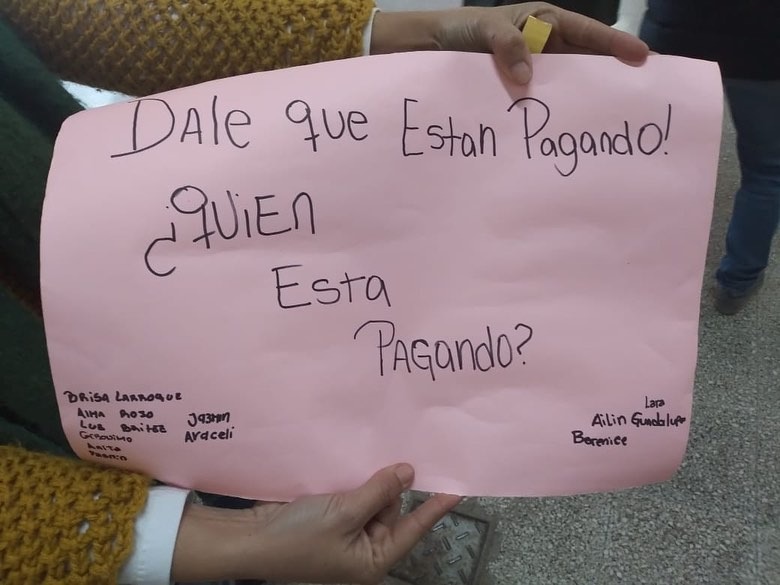 DALe que Estan Pagando!
¿QUiEN
Esta
PAGando?
BRiSA LARROQUE
AlMA ROJO
LUZ BRITEZ
GERONIMO
Jazmin
Araceli
Lara
AiLin Guadalupe
Berenice